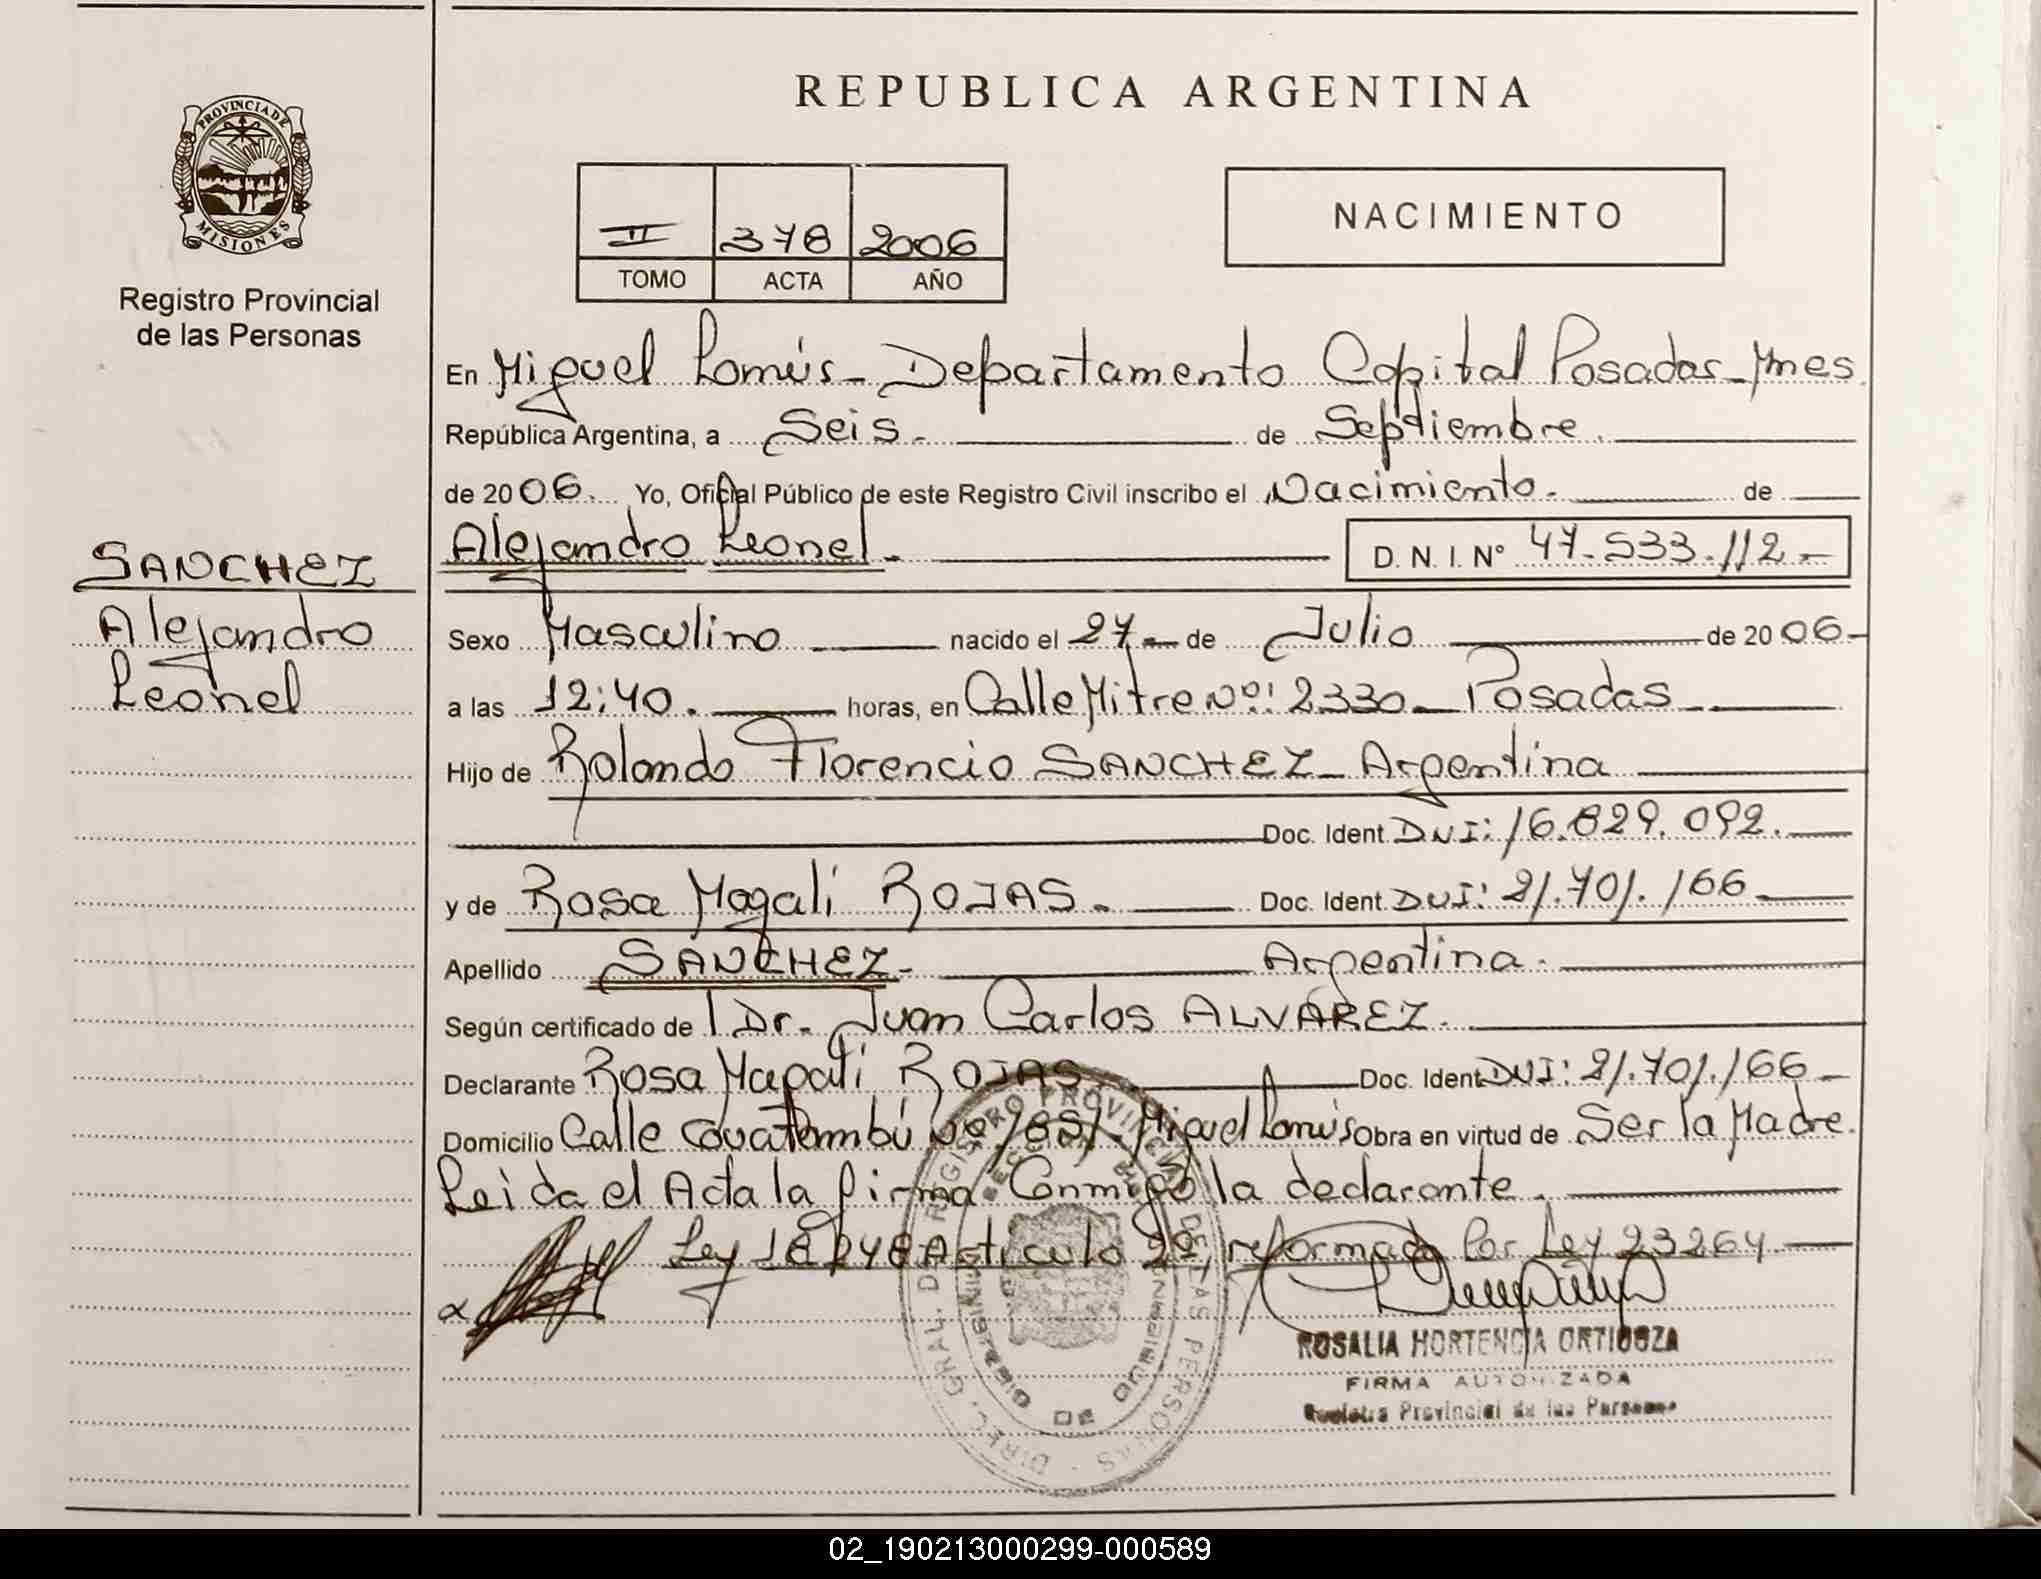 PROVINCIA DE
MISIONES
Registro Provincial
de las Personas
SANCHEZ
Alejandro
Leonel
REPUBLICA ARGENTINA
II 378 2006
TOMO ACTA AÑO
NACIMIENTO
En Miguel Lanús - Departamento Capital Posadas - Mnes.
República Argentina, a Seis. de Septiembre.
de 2006. Yo, Oficial Público de este Registro Civil inscribo el Nacimiento. de
Alejandro Leonel. D. N. I. N° 47.533.112.-
Sexo Masculino nacido el 27 - de Julio de 2006-
a las 12:40. horas, en Calle Mitre Nº: 2330 - Posadas -
Hijo de Rolando Florencio SANCHEZ - Argentina
Doc. Ident. DNI: 16.829.092.
y de Rosa Magali ROJAS. Doc. Ident. DNI: 21.701.166
Apellido SANCHEZ - Argentina.
Según certificado de Dr. Juan Carlos ALVAREZ.
Declarante Rosa Magali ROJAS Doc. Ident DNI: 21.701.166
Domicilio Calle Nº Miguel Lanús Obra en virtud de Ser la Madre.
Leida el Acta la firma Conmigo la declarante.
Ley 18248 Articulo reformado Por Ley 23264
ROSALIA HORTENCIA
FIRMA AUTORIZADA
Registro Provincial de las Personas
DIREC. GRAL. D REGISTRO PROVINCIAL DE LAS PERSONAS
02_190213000299-000589